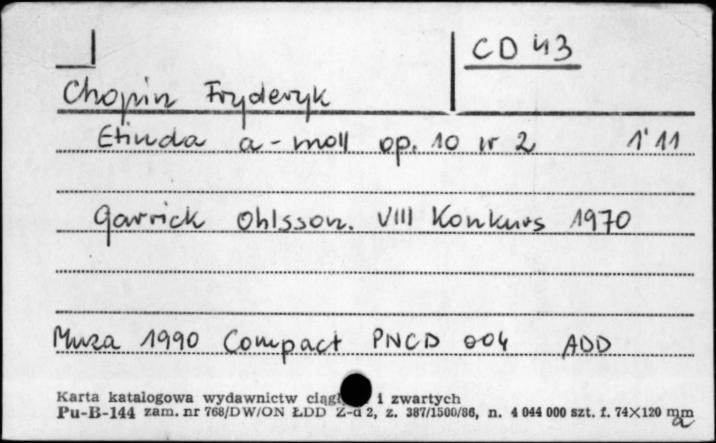 CD 43
Chopin Fryderyk
Etiuda a-moll op. 10 nr 2 1'11
Garrick Ohlsson. VIII Konkurs 1970
Muza 1990 Compact PNCD 004 ADD
Karta katalogowa wydawnictw i zwartych
Pu-B-144 zam. nr 768/DW/ON ŁDD Z-d 2, z. 387/1500/86, n. 4 044 000 szt. f. 74×120 mm
a